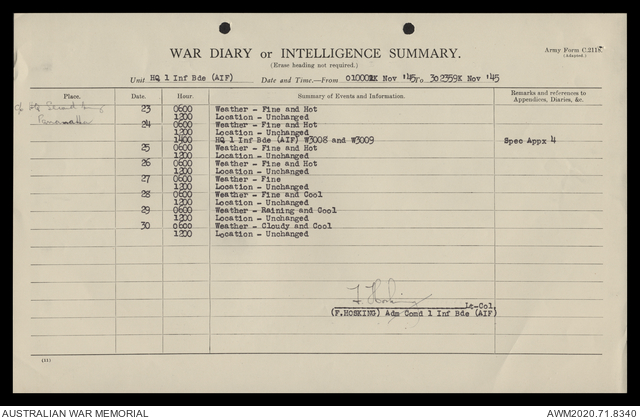 Army Form C.2118.
(Adapted.)
WAR DIARY or INTELLIGENCE SUMMARY.
(Erase heading not required.)
Unit HQ 1 Inf Bde (AIF) Date and Time.—From 010001K Nov '45 To 302359K Nov '45
Place. Date. Hour. Summary of Events and Information. Remarks and references to Appendices, Diaries, &c.
23 0600 Weather - Fine and Hot
1200 Location - Unchanged
24 0600 Weather - Fine and Hot
1200 Location - Unchanged
1400 HQ 1 Inf Bde (AIF) W3008 and W3009 Spec Appx 4
25 0600 Weather - Fine and Hot
1200 Location - Unchanged
26 0600 Weather - Fine and Hot
1200 Location - Unchanged
27 0600 Weather - Fine
1200 Location - Unchanged
28 0600 Weather - Fine and Cool
1200 Location - Unchanged
29 0600 Weather - Raining and Cool
1200 Location - Unchanged
30 0600 Weather - Cloudy and Cool
1200 Location - Unchanged
F. Hosking
Lt-Col,
(F.HOSKING) Adm Comd 1 Inf Bde (AIF)
(11)
AUSTRALIAN WAR MEMORIAL AWM2020.71.8340